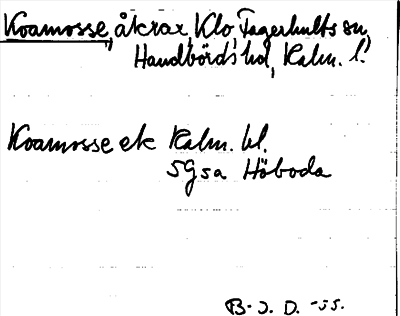 Koamosse, åkrar, Klo, Fagerhults sn,
Handbörds hd, Kalm. l.
Koamosse ek Kalm. bl.
5G5a Höboda
B-J. D. -55.